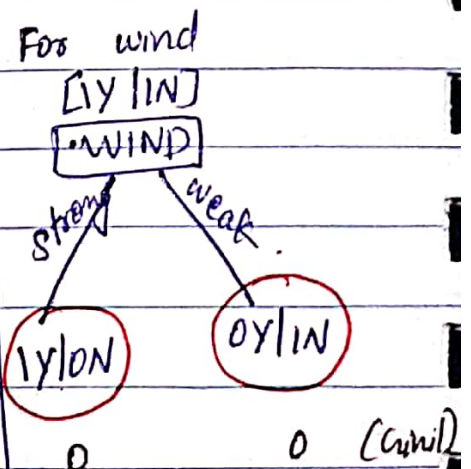 For wind
[1Y|1N]
WIND
strong weak
1Y|0N 0Y|1N
0 0 (Gini)